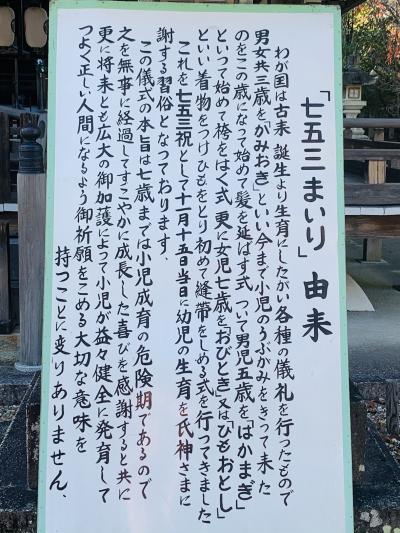 「七五三まいり」由来
わが国は古来 誕生より生育にしたがい各種の儀礼を行ったもので
男女共三歳を「かみおき」といい今まで小児のうぶかみをきって来た
のをこの歳になって始めて髪を延ばす式 ついで男児五歳を「はかまぎ」
といって始めて袴をはく式 更に女児七歳を「おびとき」又は「ひもおとし」
といい着物をつけひもをとり初めて縫帶をしめる式を行ってきました
これを七五三祝として十一月十五日当日に幼児の生育を氏神さまに
謝する習俗となっております.
この儀式の本旨は七歳までは小児成育の危険期であるので
之を無事に経過してすこやかに成長した喜びを感謝すると共に
更に将来とも広大の御加護によって小児が益々健全に発育して
つよく正しい人間になるよう御祈願をこめる大切な意味を
持つことに変りありません.